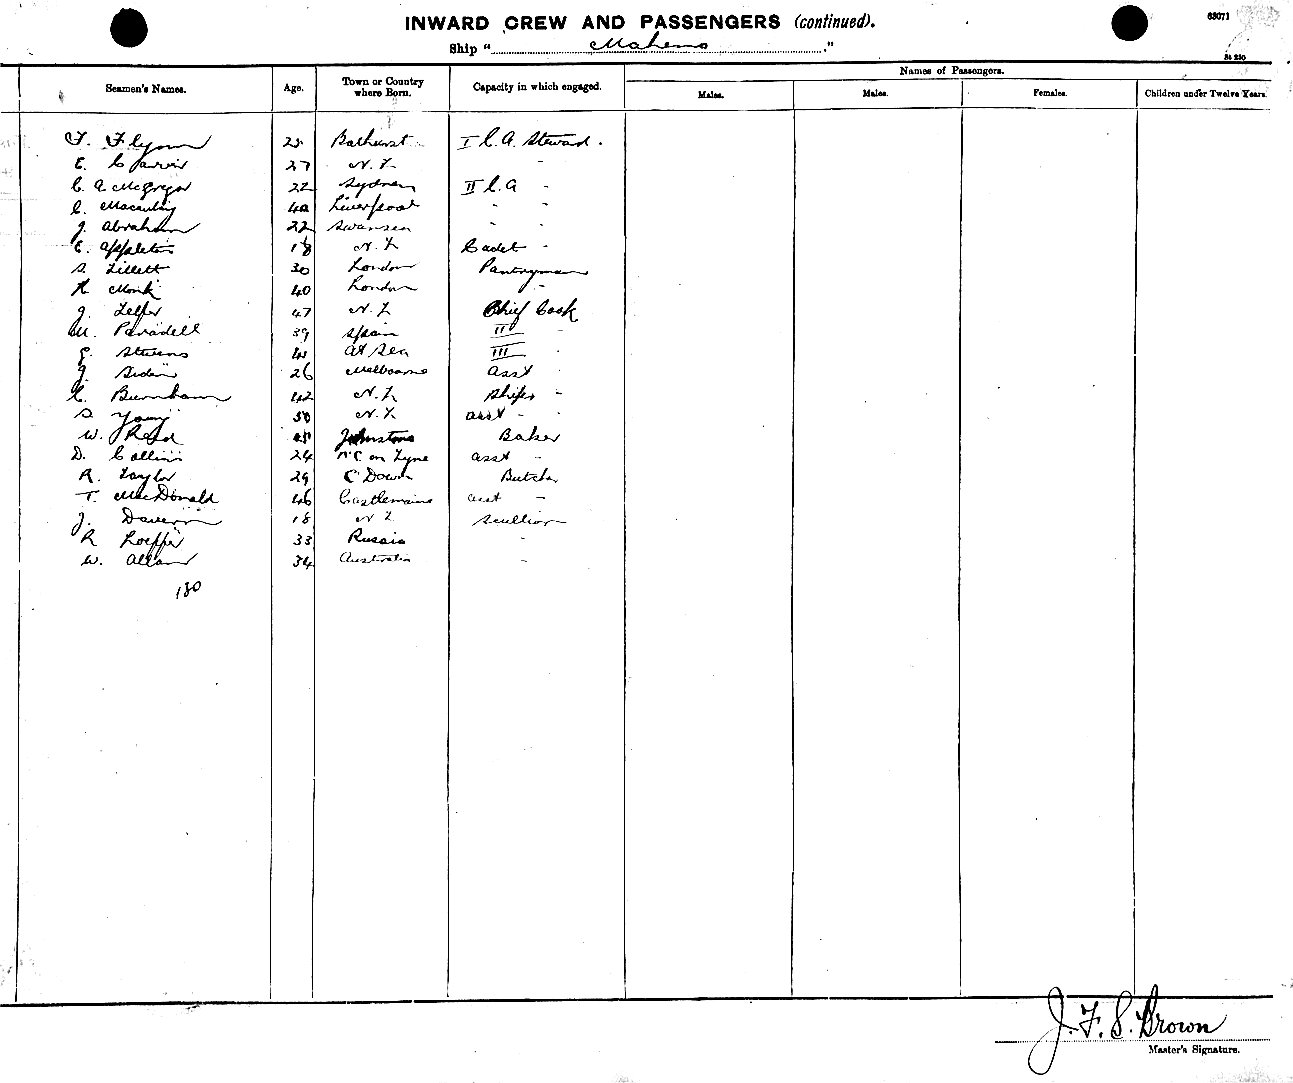 INWARD CREW AND PASSENGERS (continued).
63071
Ship "Maheno."
St 250
Names of Passengers.
Seamen's Names. Age. Town or Country where Born. Capacity in which engaged. Males. Males. Females. Children under Twelve Years.
F. Flynn Bathurst I C.A. Steward.
E. 27 N.Z. "
C. A. McGregor 22 Sydney II C.A "
C. Macaulay 40 Liverpool " "
J. Abraham 22 Swansea " "
E. Appleton 18 N.Z. Cadet "
S. Lillett 30 London Pantryman
H. Monk 40 London "
J. Telfer 47 N.Z Chief Cook
M. Paradell 39 Spain II "
E. Stevens 41 At Sea III "
J. 26 Melbourne Asst "
C. Burnham 42 N.Z. Ships "
S. Young 50 N.Z. asst " "
W. Reid Johnstone Baker
D. Collins 24 N'C on Tyne asst "
R. Taylor 29 C Down Butcher
T. MacDonald 46 Castlemaine asst "
J. Daveron 18 N Z Scullion
R Loeffer 33 Russia "
W. Allan 34 Australia "
130
J. F. S. Brown
Master's Signature.